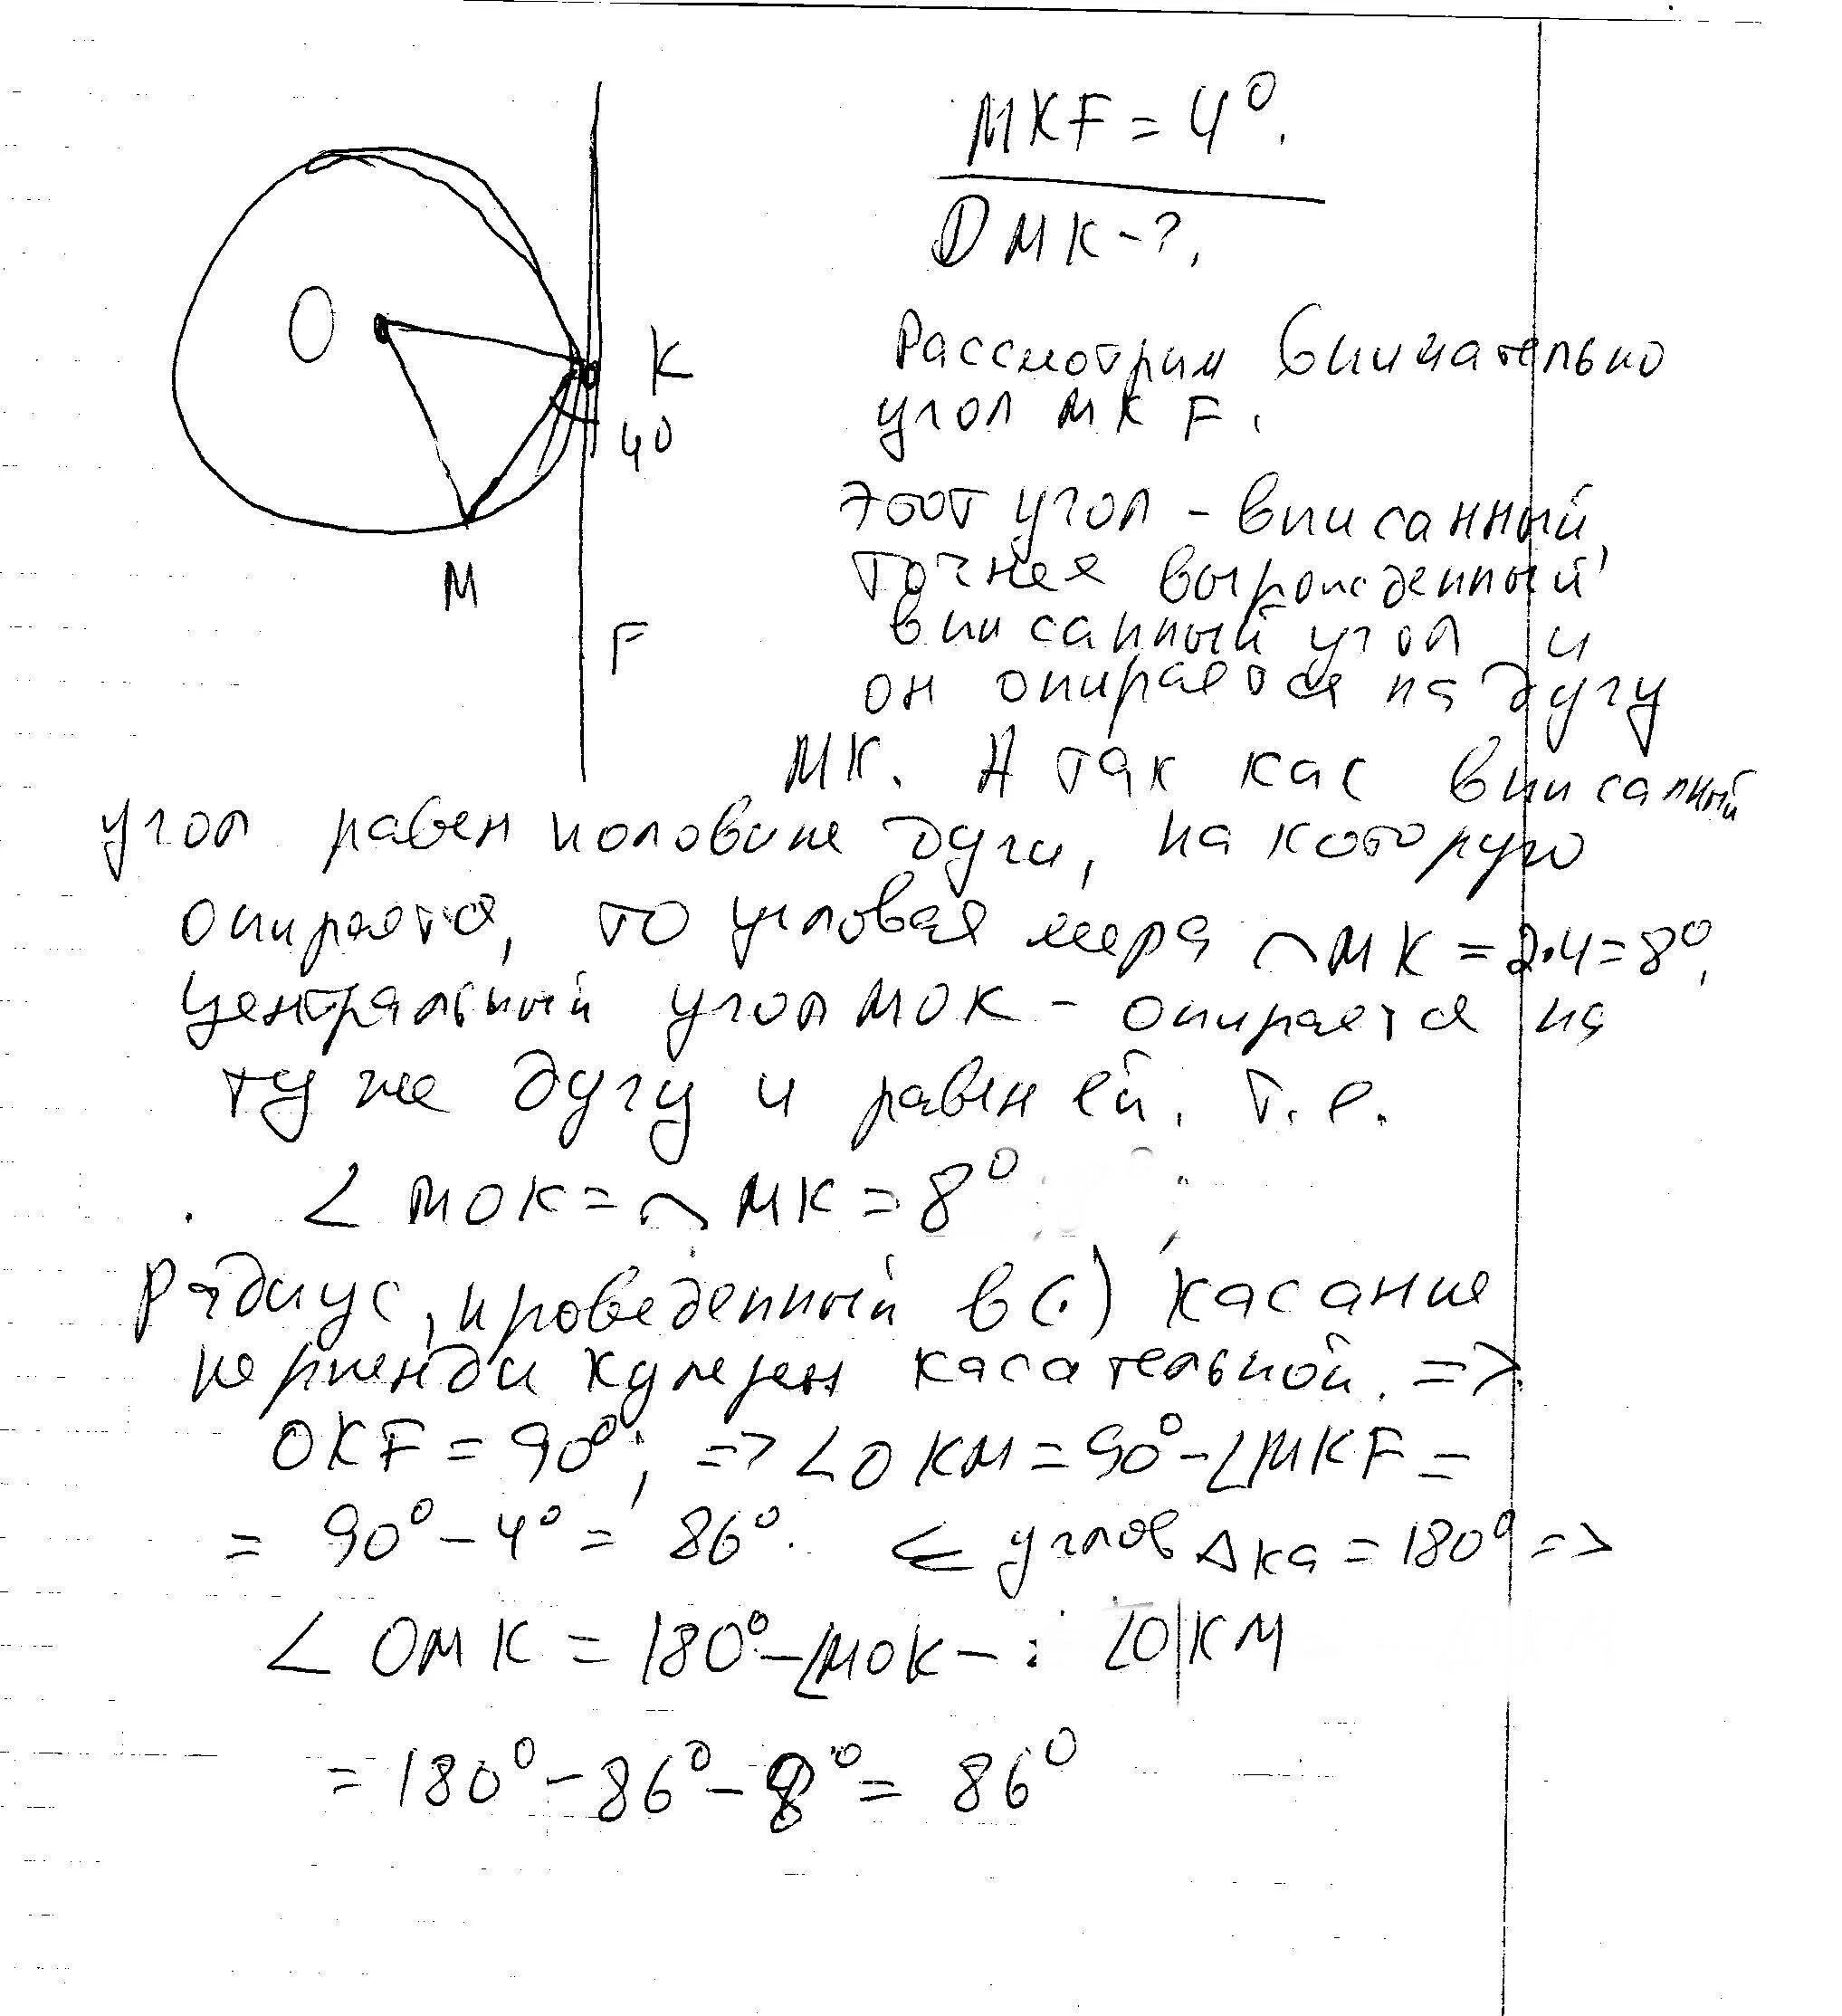 MKF = 4°.
OMK - ?.
O
K
4°
M
F
Рассмотрим внимательно
угол MKF.
Этот угол - вписанный,
точнее вырожденный
вписанный угол и
он опирается на дугу
MK. А так как вписанный
угол равен половине дуги, на которую
опирается, то угловая мера ◠MK = 2·4 = 8°.
Центральный угол MOK - опирается на
ту же дугу и равен ей. Т.е.
∠MOK = ◠MK = 8°
Радиус, проведенный в (·) касание
перпендикулярен касательной. =>
OKF = 90°; => ∠OKM = 90° - ∠MKF =
= 90° - 4° = 86°. углов Δка = 180° =>
∠OMK = 180° - ∠MOK - ∠OKM
= 180° - 86° - 8° = 86°